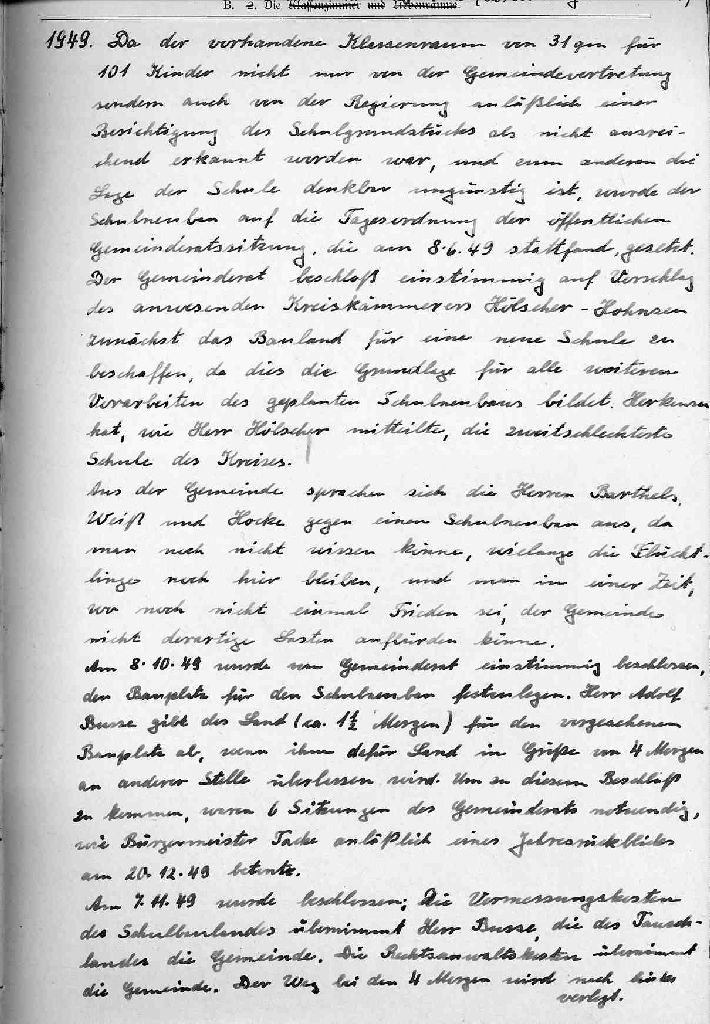 B. 2. Die Klassenzimmer und Nebenräume
1949. Da der vorhandene Klassenraum von 31 qm für
101 Kinder nicht nur von der Gemeindevertretung
sondern auch von der Regierung anläßlich einer
Besichtigung des Schulgrundstücks als nicht ausrei-
chend erkannt worden war, und zum anderen die
Lage der Schule denkbar ungünstig ist, wurde der
Schulneubau auf die Tagesordnung der öffentlichen
Gemeinderatssitzung, die am 8.6.49 stattfand, gesetzt.
Der Gemeinderat beschloß einstimmig auf Vorschlag
des anwesenden Kreiskämmerers Hölscher - Hohnsen
zunächst das Bauland für eine neue Schule zu
beschaffen, da dies die Grundlage für alle weiteren
Vorarbeiten des geplanten Schulneubaus bildet. Herkensen
hat, wie Herr Hölscher mitteilte, die zweitschlechteste
Schule des Kreises.
Aus der Gemeinde sprachen sich die Herren Barthels,
Weiß und Hocke gegen einen Schulneubau aus, da
man noch nicht wissen könne, wielange die Flücht-
linge noch hier bleiben, und man in einer Zeit,
wo noch nicht einmal Frieden sei, der Gemeinde
nicht derartige Lasten aufbürden könne.
Am 8.10.49 wurde vom Gemeinderat einstimmig beschlossen,
den Bauplatz für den Schulneubau festzulegen. Herr Adolf
Busse gibt das Land (ca. 1½ Morgen) für den vorgesehenen
Bauplatz ab, wenn ihm dafür Land in Größe von 4 Morgen
an anderer Stelle überlassen wird. Um zu diesem Beschluß
zu kommen, waren 6 Sitzungen des Gemeinderats notwendig,
wie Bürgermeister Tacke anläßlich eines Jahresrückblicks
am 20.12.49 betonte.
Am 7.11.49 wurde beschlossen: Die Vermessungskosten
des Schulbaulandes übernimmt Herr Busse, die des Tausch-
landes die Gemeinde. Die Rechtsanwaltskosten übernimmt
die Gemeinde. Der Weg bei den 4 Morgen wird nach links
verlegt.